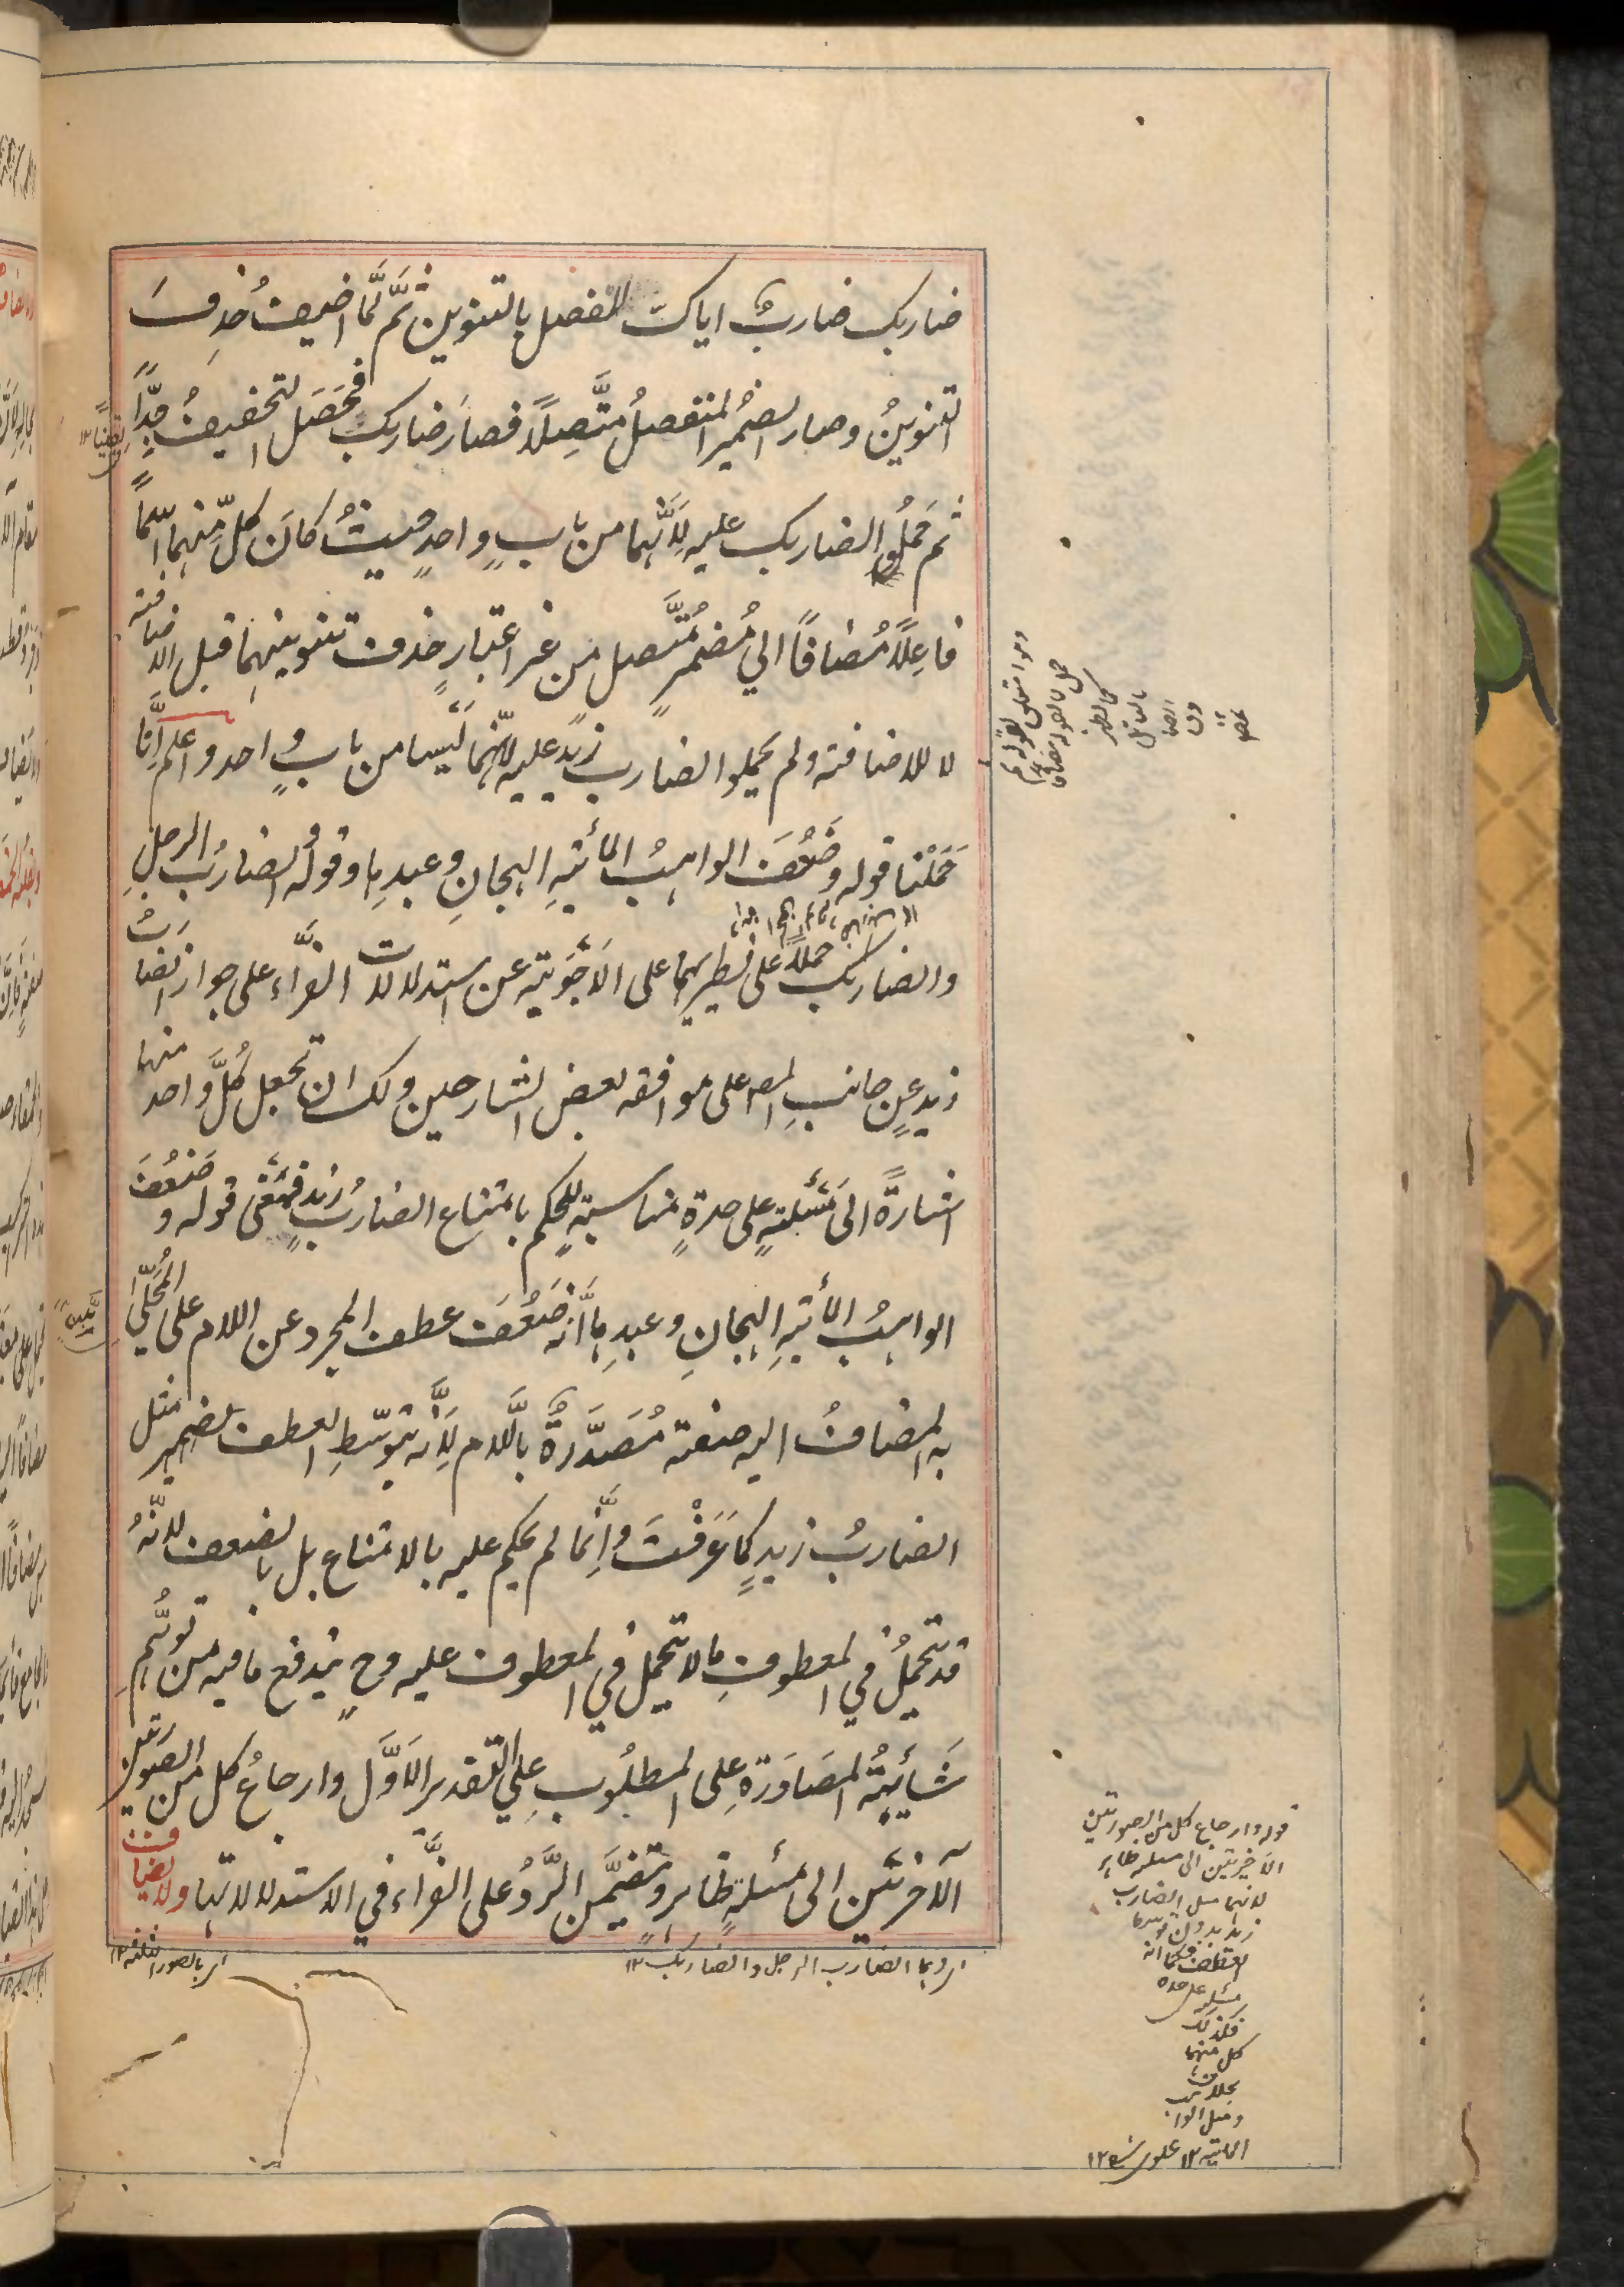 ضاربك ضاربٌ اياك المنفصل بالتنوين ثمَّ لمَّا اضيفُ حُذِفَ
التنوينُ وصار الضميرُ المنفصلُ مُتَّصِلًا فصارَ ضاربك فحَصَل التخفيفُ جدًّا
ثم حَمَلُوا الضاربك عليه لِاَنَّهما من بابٍ واحدٍ حيثُ كان كلٌّ منهما اسمًا
فاعِلًا مُضافًا الي مُضمرٍ مُتَّصل من غير اعتبارِ حذف تنوينهما قبل الاضافة
لا للاضافة ولم يحملوا الضارب زيدٍ عليه لانّهما لَيسا من بابٍ واحد واعلم اِنَّا
حَمَلْنا قوله وضَعُفَ الواهبُ المأيةِ الهجانِ وعبدِها وقولُه الضاربُ الرجلِ
والضاربك حملًا على نظيريهما على الاَجوِبَة عن استدلالات الفرَّاء على جواز الضاربُ
زيد عن جانبِ المص على موافقة بعض الشارحين ولك ان تجعل كُلَّ واحد منها
اشارةً الى مَسْئلةٍ على حدةٍ مناسبةٍ للحكم بامتناع الضاربُ زيدٍ فمعنى قوله وضَعُفَ
الواهبُ المأيةِ الهجانِ وعبدِها اَنَّه ضَعُفَ عطف المجرد عن اللام على المُحَلّى
به المضافُ اليه صفة مُصَدَّرةٌ باللام لِاَنَّه بتوسّطِ العطف يصير مثل
الضاربُ زيدٍ كما عَرَفْتَ واِنَّما لم يحكم عليه بالامتناع بل بالضعف لانّهُ
قد يتحملُ في المعطوفِ ما لا يتحمل في المعطوف عليه وحٍ يندفع ما فيه من توهُّمِ
شَائِبَةُ المُصَادَرَةِ على المطلُوبِ علي التقدير الاَوَّل وارجاعُ كل من الصورتين
الآخرتَين الى مسئلةٍ ظاهرٌ وتضمَّن الرَّدُّ على الفرَّاء في الاستدلالات بها ولا يضاف
اى وهما الضارب الرجل والضاربك ١٢
اى بالصور الثلثة ١٢
قوله وارجاع كل من الصورتين
الاخيرتين الى مسئلة ظاهر
لانهما مثل الضارب
زيد بدون توسط
العطف فكما انه
مسئلة على حدة
فكذلك
كل منهما
بخلاف
ومثل الواهب
المأية ١٢ علوى